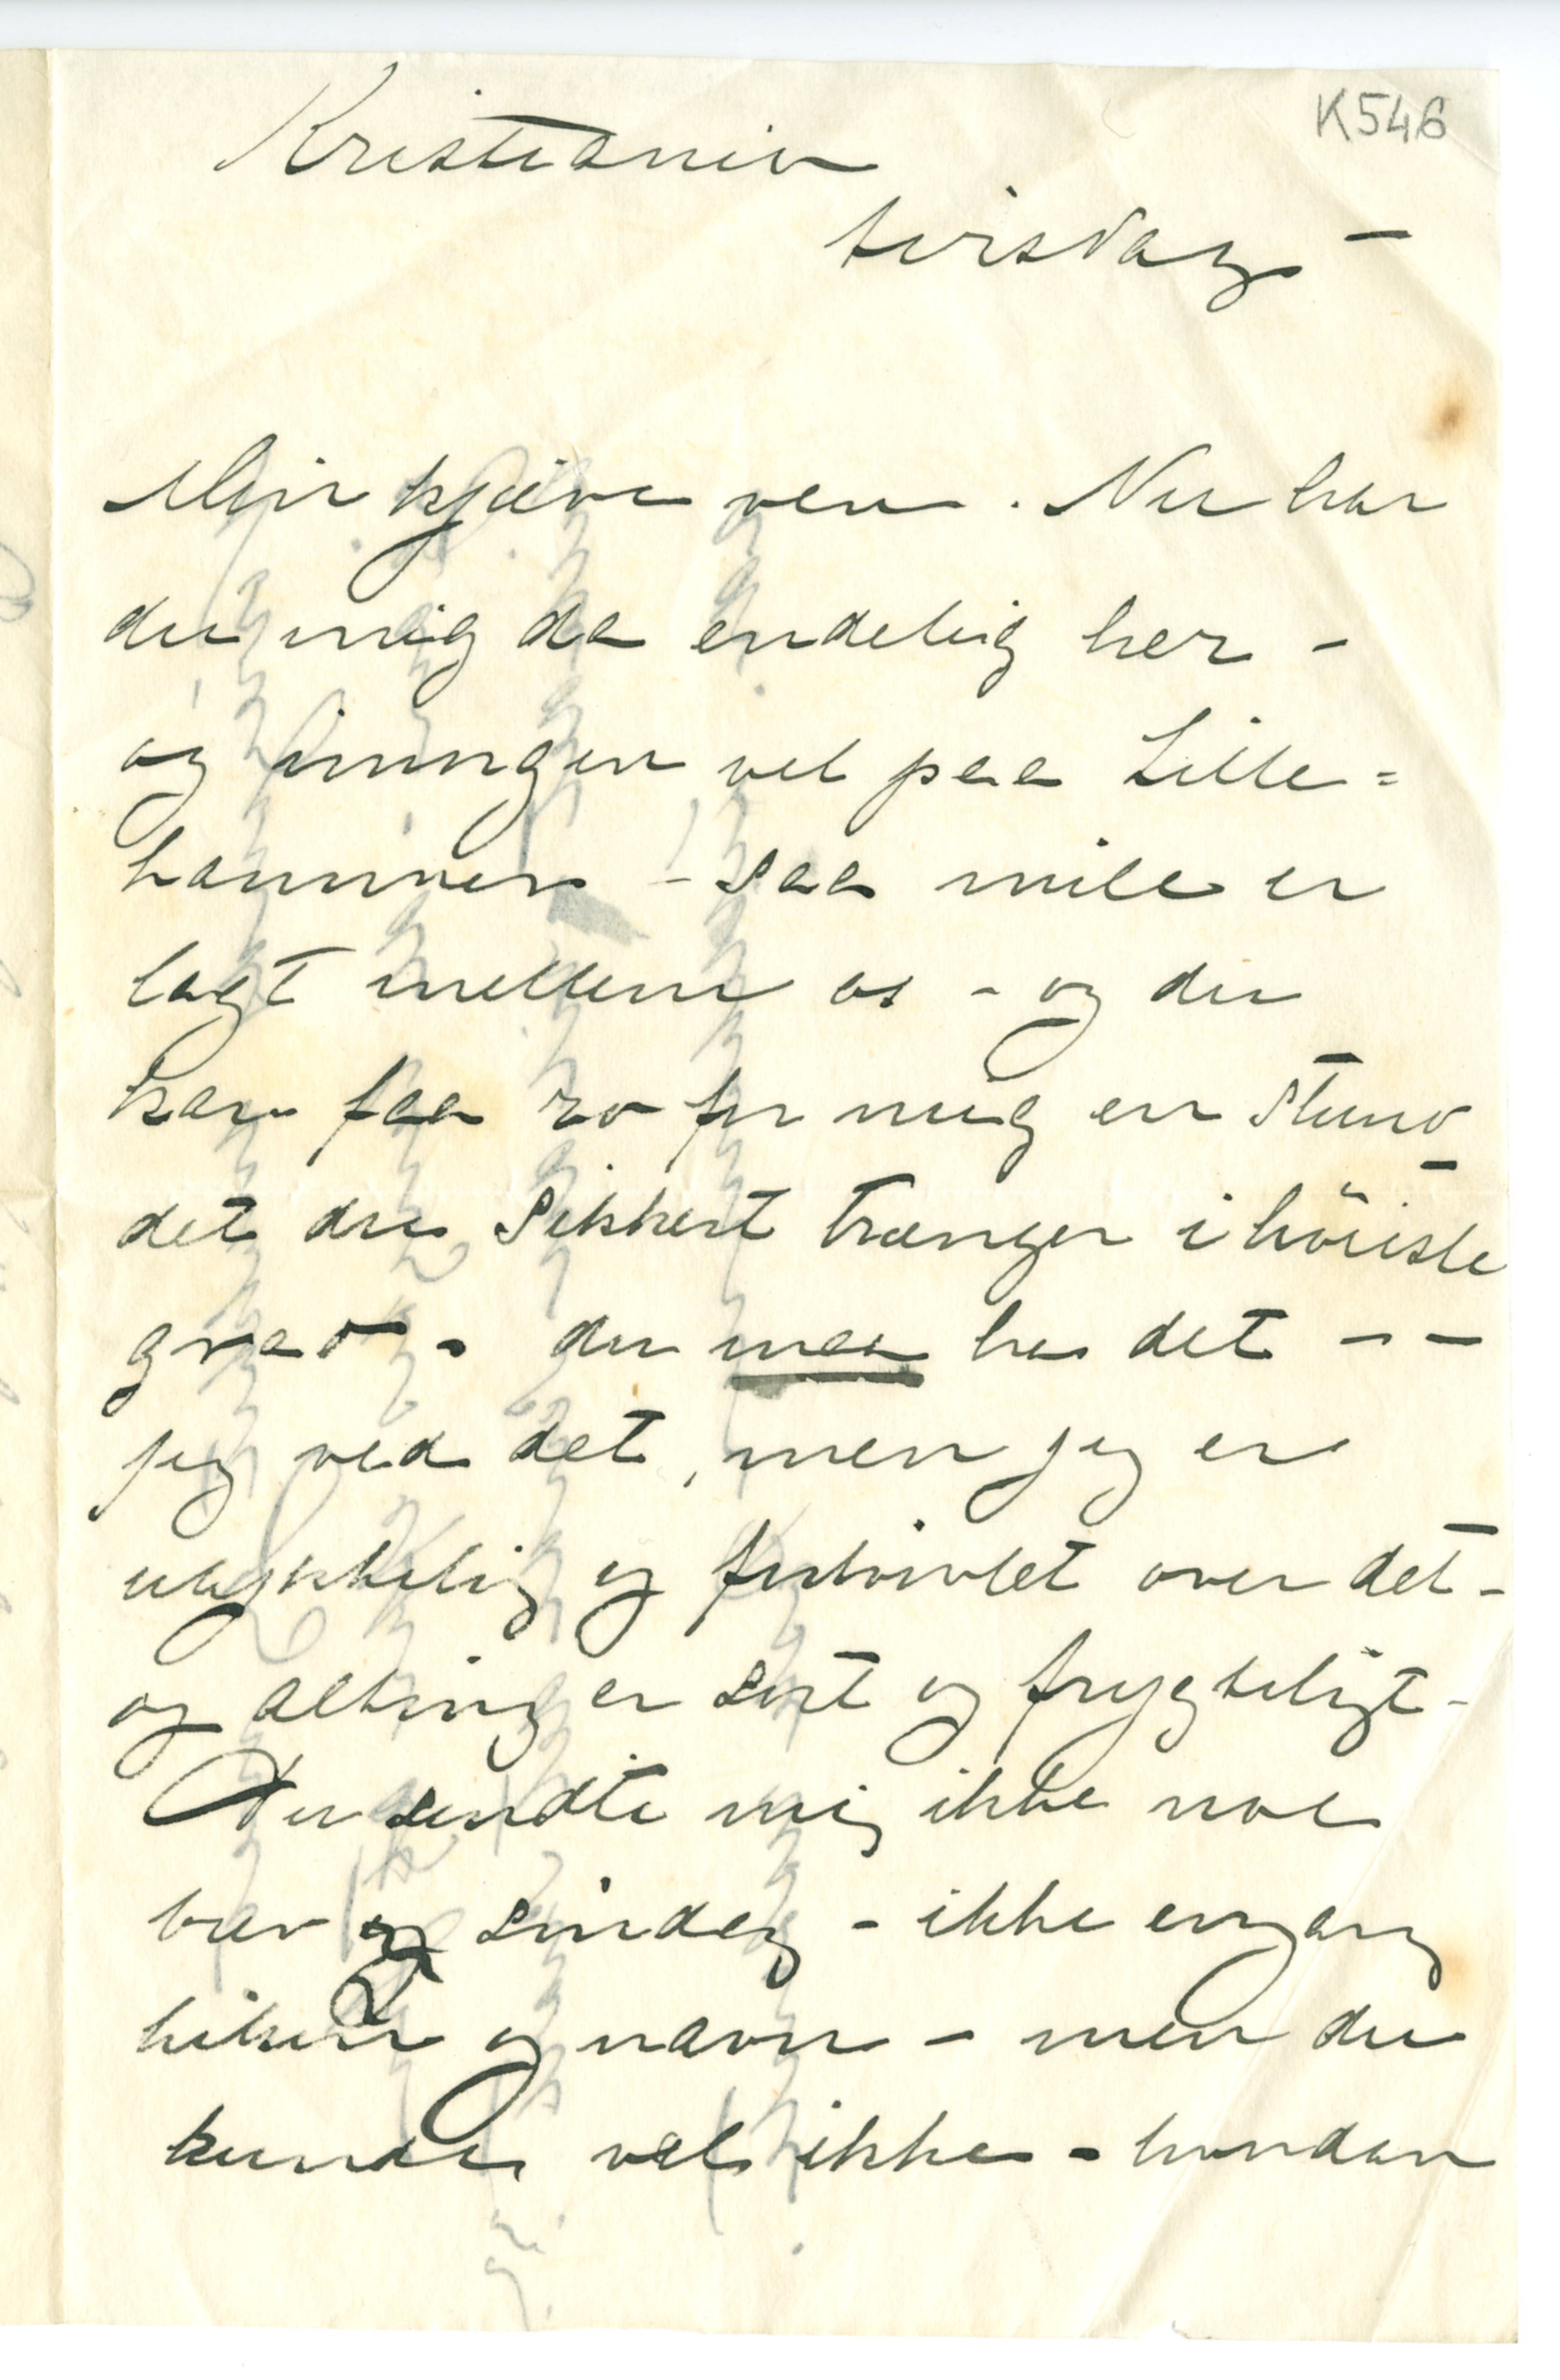 K546
Kristiania
tirsdag –
Min kjære ven. Nu har
du mig da endelig her –
og ungen vel paa Lille=
hammer – saa mile er
lagt mellem os – og du
kan faa ro for mig en stund
det du sikkert trænger i høieste
grad – du maa ha det – –
jeg ved det, men jeg er
ulykkelig og fortvivlet over det –
og alting er sort og frygteligt –
Du sendte mig ikke noe
brev søndag – ikke engang
hilsen og navn – men du
kunde vel ikke – hvordan